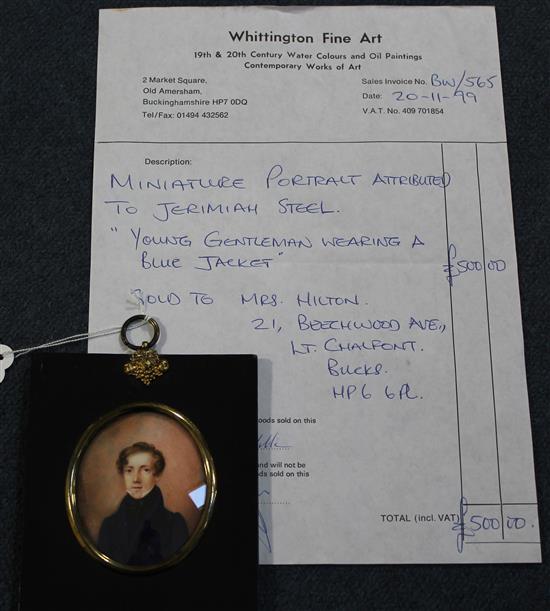 Whittington Fine Art
19th & 20th Century Water Colours and Oil Paintings
Contemporary Works of Art
2 Market Square,
Old Amersham,
Buckinghamshire HP7 0DQ
Tel/Fax: 01494 432562
Sales Invoice No. BW/565
Date: 20-11-99
V.A.T. No. 409 701854
Description:
MINIATURE PORTRAIT ATTRIBUTED
TO JERIMIAH STEEL.
"YOUNG GENTLEMAN WEARING A
BLUE JACKET"
£500 00
SOLD TO MRS. HILTON.
21, BEECHWOOD AVE.,
LT. CHALFONT.
BUCKS.
HP6 6PL.
oods sold on this
and will not be
ods sold on this
TOTAL (incl. VAT) £500 00.